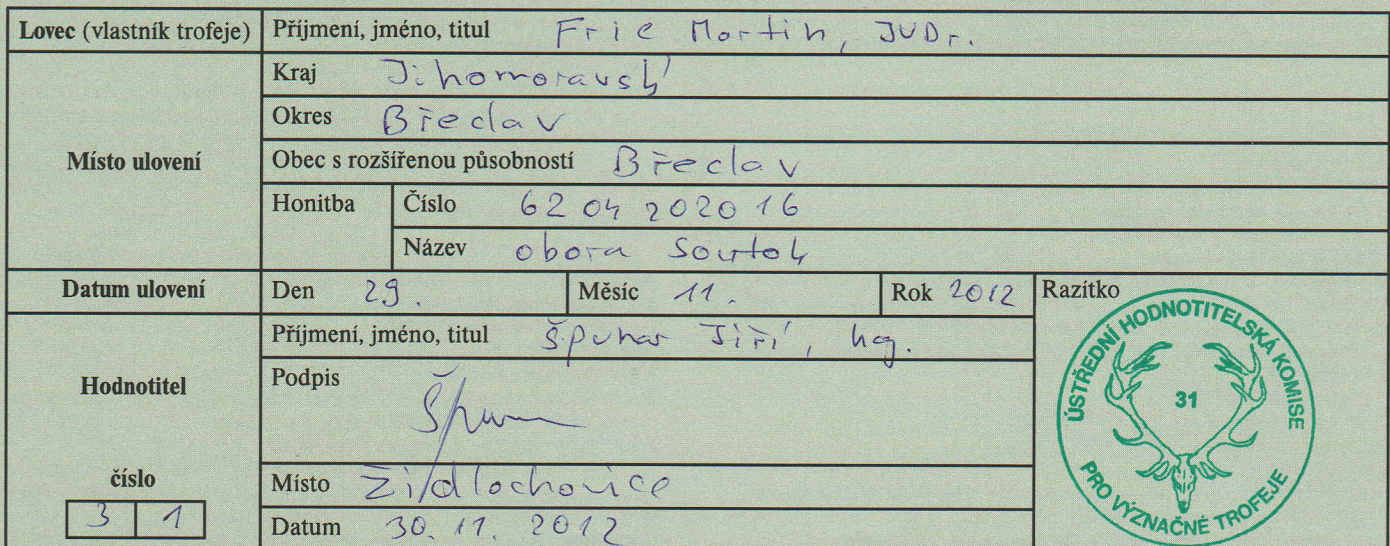 Lovec (vlastník trofeje) Příjmení, jméno, titul Fric Martin, JUDr.
Kraj Jihomoravský
Okres Břeclav
Místo ulovení
Obec s rozšířenou působností Břeclav
Honitba Číslo 62 04 2020 16
Název obora Soutok
Datum ulovení Den 29. Měsíc 11. Rok 2012 Razítko
Příjmení, jméno, titul Jiří,
Hodnotitel
Podpis
číslo
3 1
Místo Židlochovice
Datum 30. 11. 2012
ÚSTŘEDNÍ HODNOTITELSKÁ KOMISE
31
PRO VÝZNAČNÉ TROFEJE